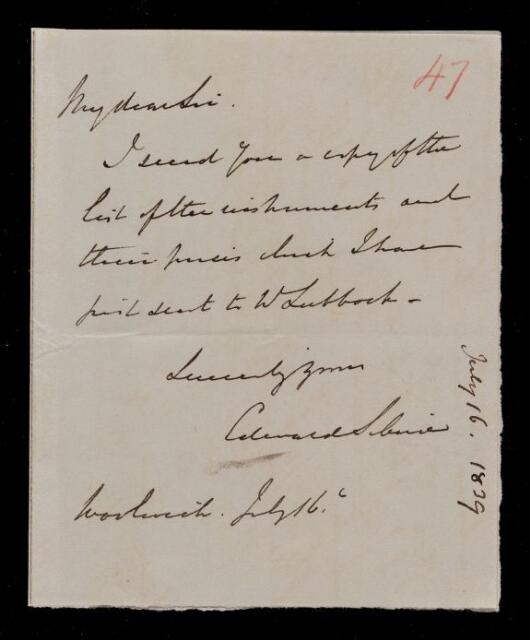 47
My dear Sir.
I send you a copy of the
list of the instruments and
their prices which I have
just sent to W Lubbock -
Sincerely yours
Edward Sabine
Woolwich. July 16.
July 16. 1839